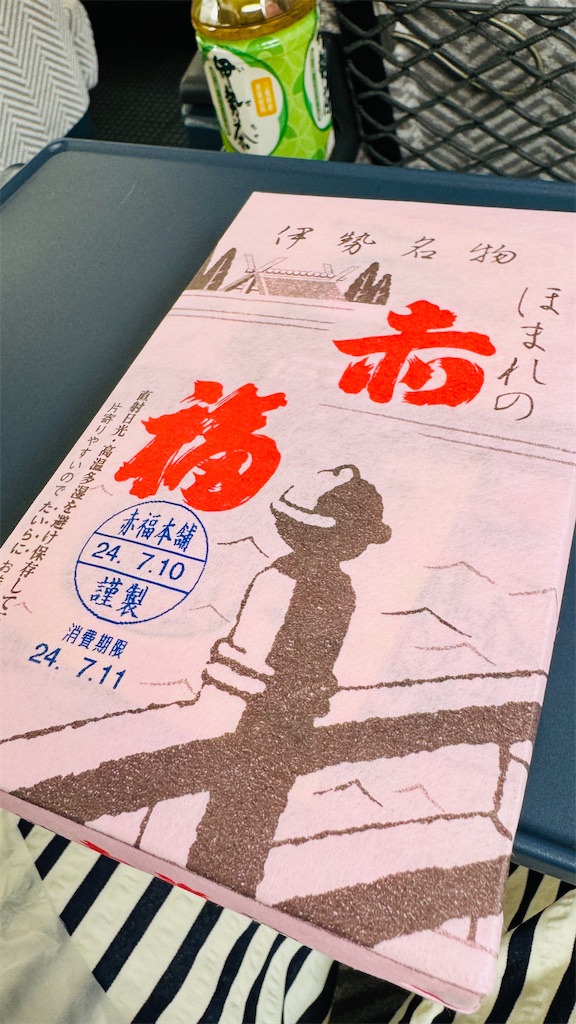 伊勢名物
ほまれの
赤
福
直射日光・高温多湿を避け保存して
片寄りやすいのでたいらにお
赤福本舗
24. 7.10
謹製
消費期限
24. 7.11